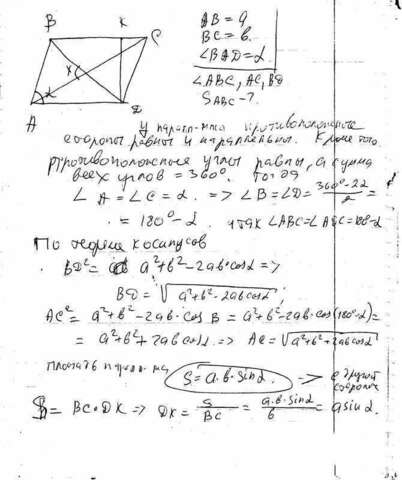 B K C
x
α
A D
AB = a
BC = b
∠BAD = α
∠ABC, AC, BD
S ABC - ?
У паралл-мма противоположные
стороны равны и параллельны. Кроме того
противоположные углы равны, а сумма
всех углов = 360°. Тогда
∠A = ∠C = α. => ∠B = ∠D = (360° - 2α)/2 =
= 180° - α итак ∠ABC = ∠ADC = 180 - α
По теореме косинусов
BD² = a² + b² - 2ab·cosα =>
BD = √(a² + b² - 2ab cosα);
AC² = a² + b² - 2ab·cos B = a² + b² - 2ab·cos(180° - α) =
= a² + b² + 2ab cosα. => AC = √(a² + b² + 2ab cosα)
площадь паралл-ма
S = a·b·sinα. -> с другой стороны
S = BC·DK => DK = S/BC = a·b·sinα/b = a sinα.